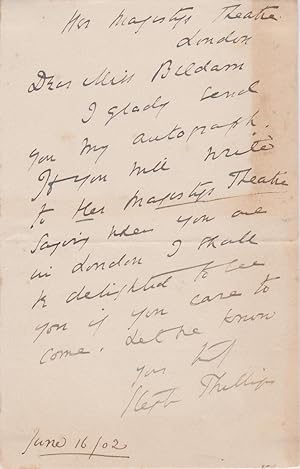 Her Majesty's Theatre
London
Dear Miss Beldam
I gladly send
you my autograph.
If you will write
to Her Majesty's Theatre
saying when you are
in London I shall
be delighted to see
you if you care to
come. Let me know
you
Stephen Phillips
June 16/02